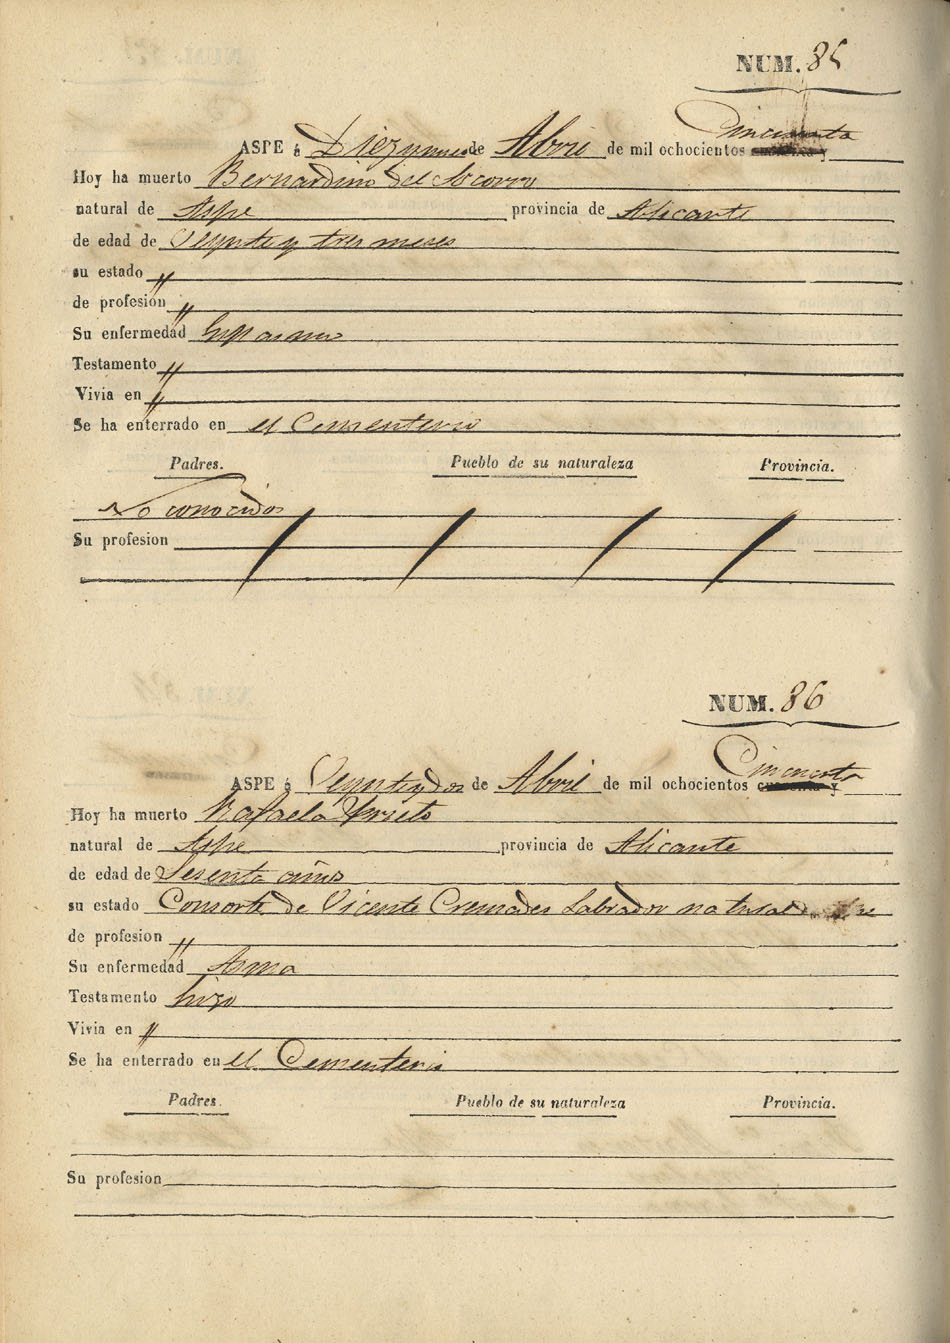 NUM. 85
Cincuenta
ASPE á Diez y nueve de Abril de mil ochocientos
Hoy ha muerto Bernardino del Socorro
natural de Aspe provincia de Alicante
de edad de Veynte y tres meses
su estado "
de profesión "
Su enfermedad
Testamento "
Vivia en "
Se ha enterrado en el Cementerio
Padres. Pueblo de su naturaleza Provincia.
No conocidos
Su profesion
NUM. 86
Cincuenta
ASPE á Veynte y dos de Abril de mil ochocientos
Hoy ha muerto Rafaela Prieto
natural de Aspe provincia de Alicante
de edad de Sesenta años
su estado Consorte de Vicente Cremades Labrador natural de
de profesion "
Su enfermedad Asma
Testamento hizo
Vivia en "
Se ha enterrado en el Cementerio
Padres. Pueblo de su naturaleza Provincia.
Su profesion